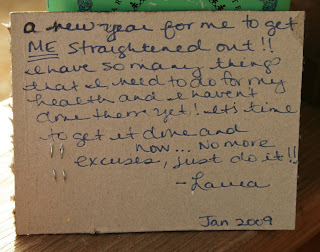 a new year for me to get
ME straightened out!!
I have so many things
that I need to do for my
health and I haven't
done them yet! It's time
to get it done and
now... No more
excuses, just do it!!
- Laura
Jan 2009